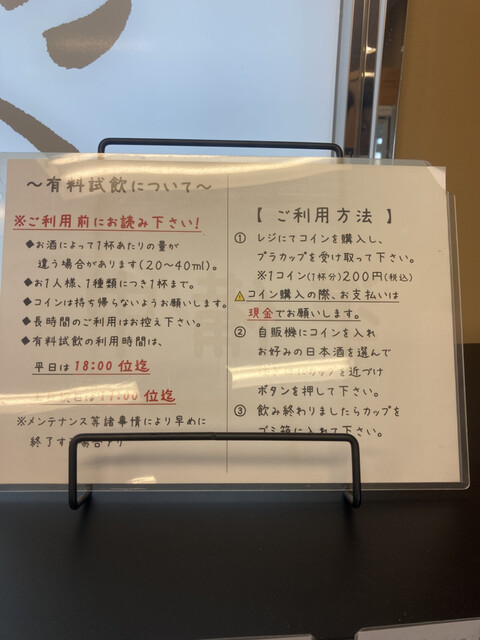 ～有料試飲について～
※ご利用前にお読み下さい!
◆お酒によって1杯あたりの量が
違う場合があります(20～40ml)。
◆お1人様、1種類につき1杯まで。
◆コインは持ち帰らないようお願いします。
◆長時間のご利用はお控え下さい。
◆有料試飲の利用時間は、
平日は18:00位迄
は17:00位迄
※メンテナンス等諸事情により早めに
終了す
【 ご利用方法 】
① レジにてコインを購入し、
プラカップを受け取って下さい。
※1コイン(1杯分)200円(税込)
⚠コイン購入の際、お支払いは
現金でお願いします。
② 自販機にコインを入れ
お好みの日本酒を選んで
を近づけ
ボタンを押して下さい。
③ 飲み終わりましたらカップを
ゴミ箱に入れて下さい。